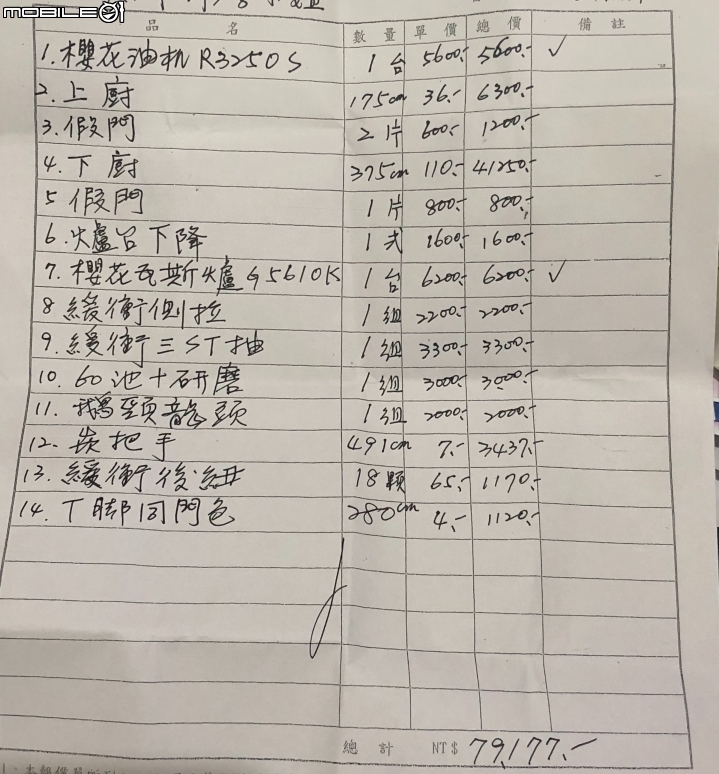 mobile01
品 名 數 量 單 價 總 價 備 註
1. 櫻花油机 R3250S 1 台 5600.- 5600.- ✓
2. 上 廚 175cm 36.- 6300.-
3. 假門 2 片 600.- 1200.-
4. 下 廚 375cm 110.- 41250.-
5 假門 1 片 800.- 800.-
6. 火爐台下降 1 式 1600.- 1600.-
7. 櫻花瓦斯爐 G5610K 1 台 6200.- 6200.- ✓
8 緩衝側拉 1 組 2200.- 2200.-
9. 緩衝三ST抽 1 組 3300.- 3300.-
10. 60池+研磨 1 組 3000.- 3000.-
11. 鵝頸龍頭 1 組 2000.- 2000.-
12. 崁把手 491cm 7.- 3437.-
13. 緩衝後鈕 18 顆 65.- 1170.-
14. T脚同門色 280cm 4.- 1120.-
總 計 NT$ 79,177.-